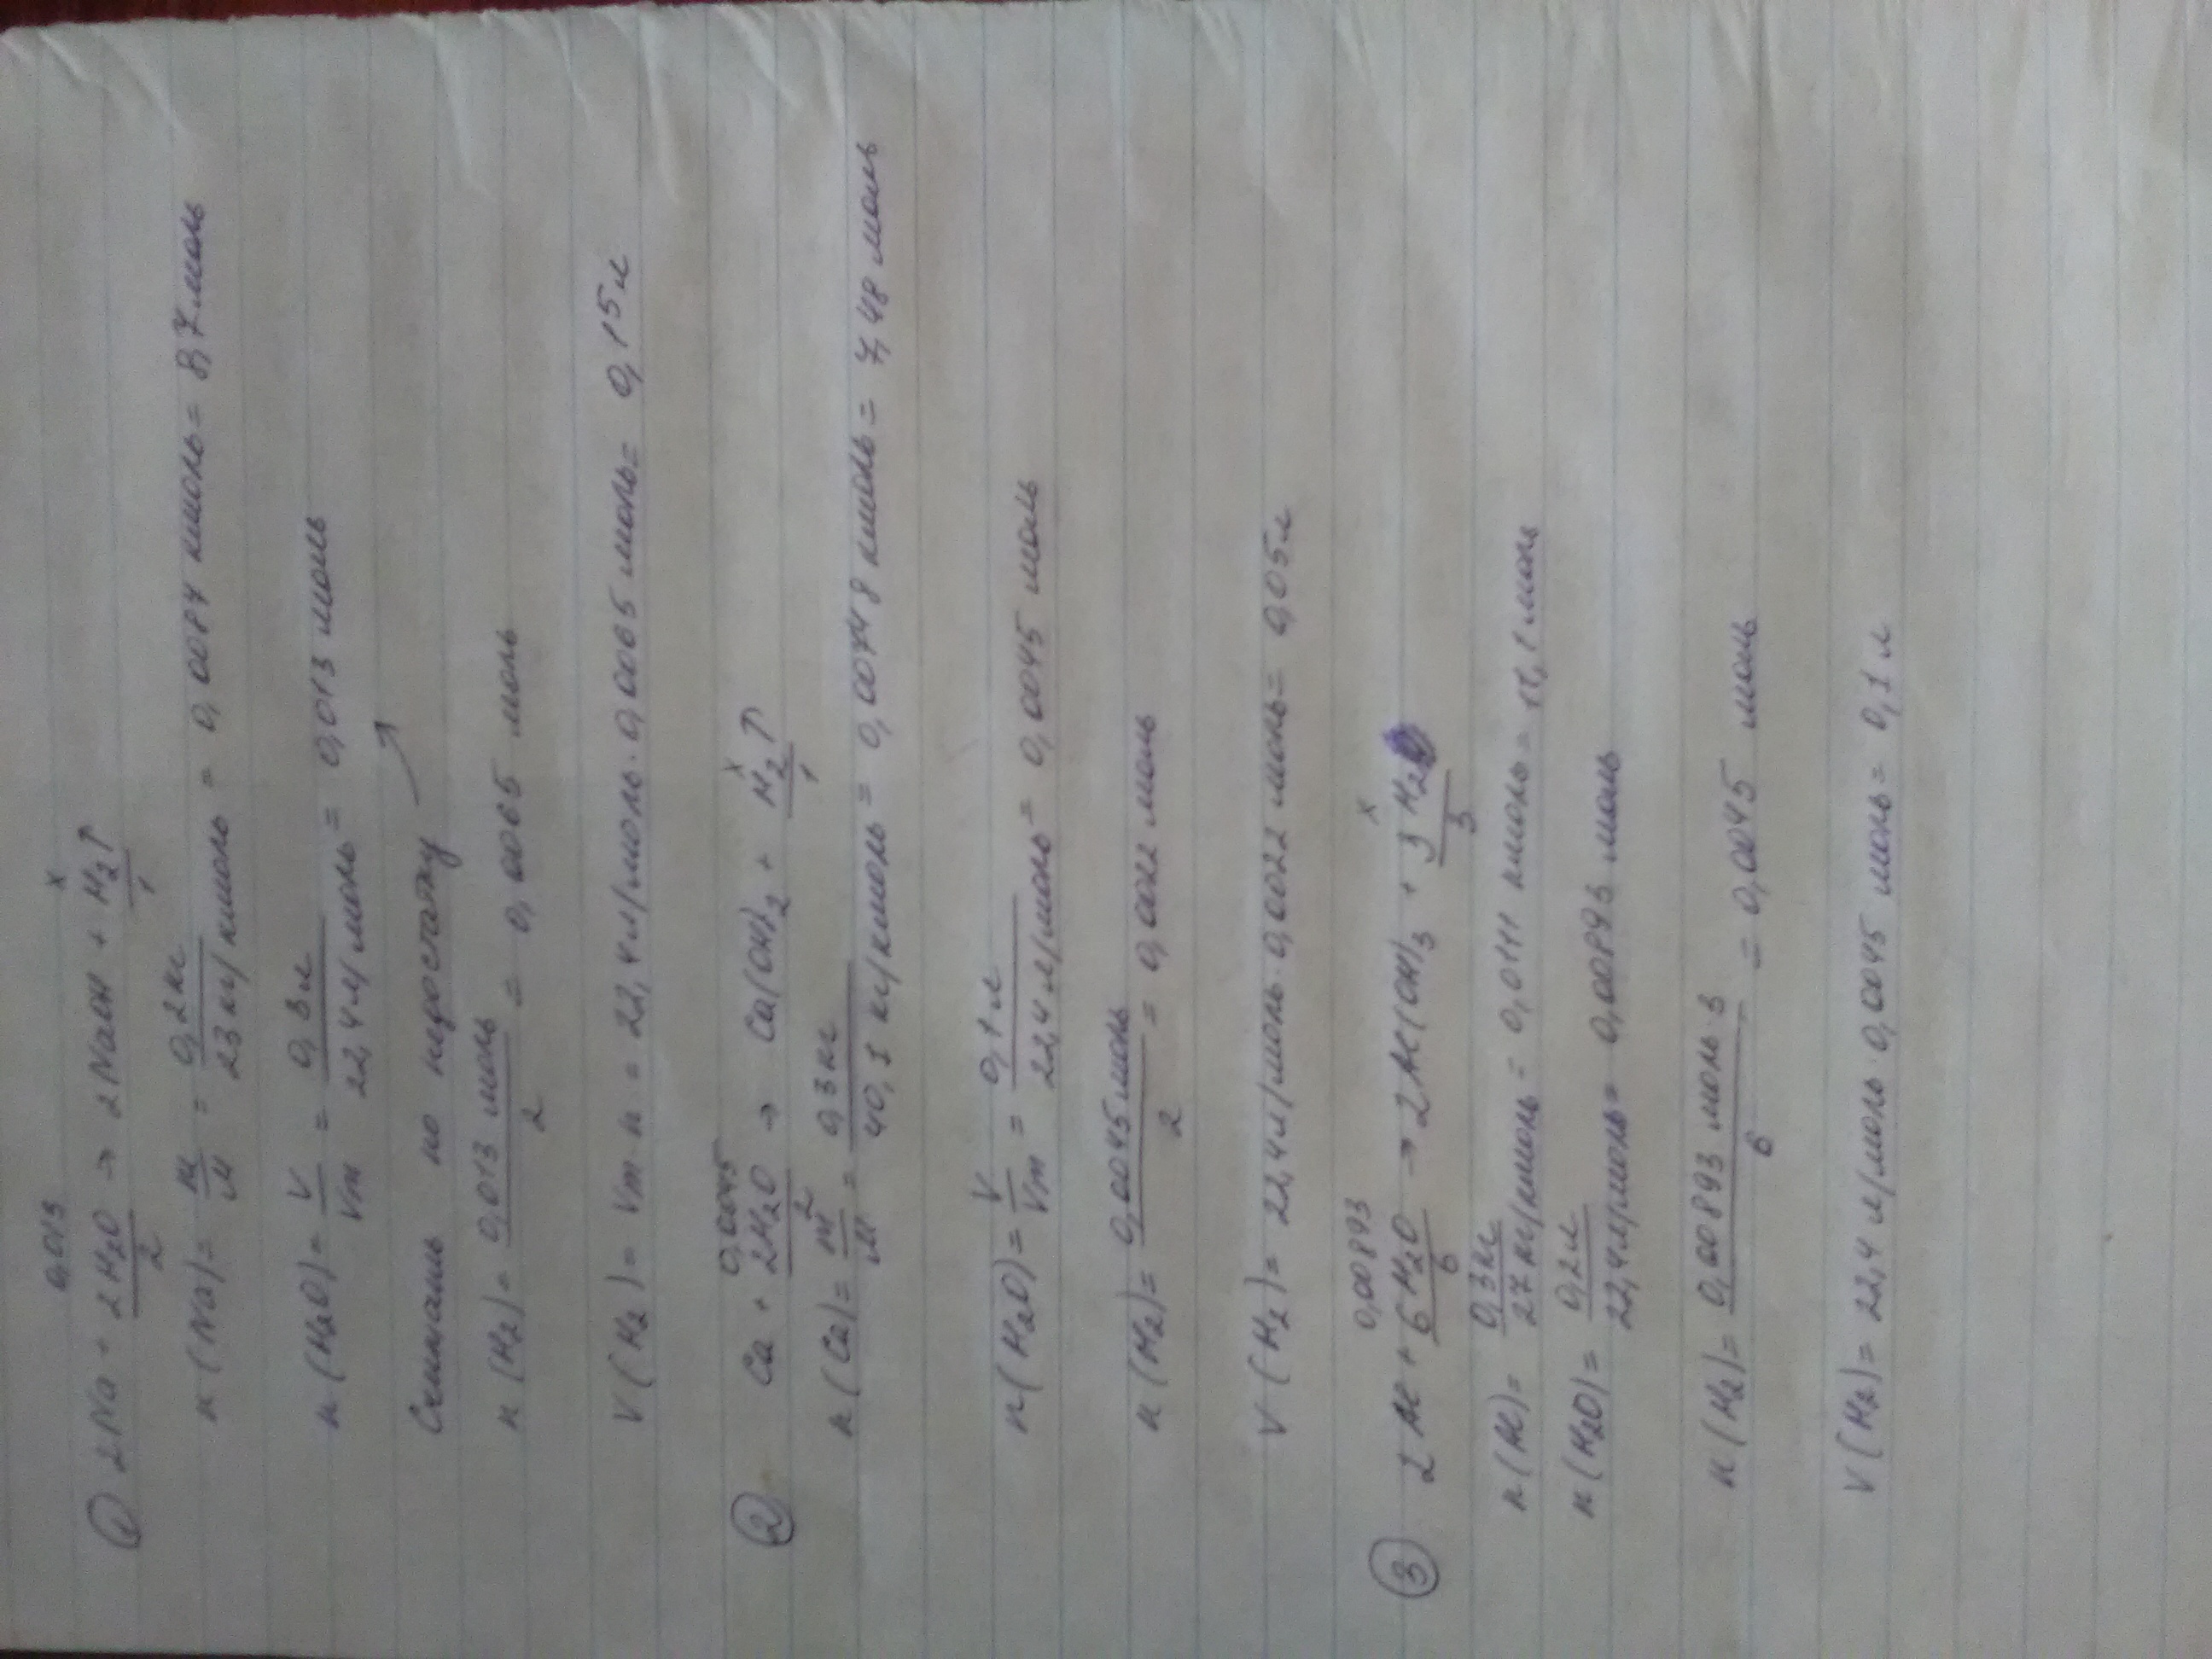 0,013 x
① 2Na + 2H₂O → 2NaOH + H₂↑
2 1
n(Na) = m/M = 0,2кг / 23 кг/кмоль = 0,0087 кмоль = 8,7 моль
n(H₂O) = V/Vm = 0,3л / 22,4л/моль = 0,013 моль
Считаем по недостатку ↗
n(H₂) = 0,013 моль / 2 = 0,0065 моль
V(H₂) = Vm·n = 22,4л/моль·0,0065 моль = 0,15л
0,0045 x
② Ca + 2H₂O → Ca(OH)₂ + H₂↑
2 1
n(Ca) = m/M = 0,3кг / 40,1 кг/кмоль = 0,00748 кмоль = 7,48 моль
n(H₂O) = V/Vm = 0,1л / 22,4л/моль = 0,0045 моль
n(H₂) = 0,0045моль / 2 = 0,0022 моль
V(H₂) = 22,4л/моль·0,0022 моль = 0,05л
0,00893 x
③ 2Al + 6H₂O → 2Al(OH)₃ + 3H₂
6 3
n(Al) = 0,3кг / 27кг/кмоль = 0,0111 кмоль = 11,1 моль
n(H₂O) = 0,2л / 22,4л/моль = 0,00893 моль
n(H₂) = 0,00893 моль·3 / 6 = 0,0045 моль
V(H₂) = 22,4 л/моль·0,0045 моль = 0,1 л